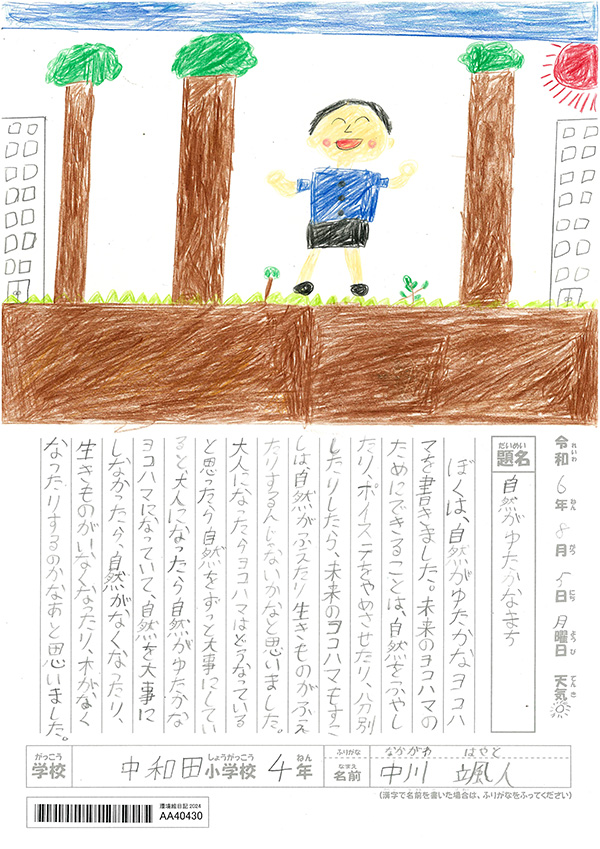 令和6年8月5日月曜日 天気
れいわ ねん がつ にち ようび てんき
だいめい
題名 自然がゆたかなまち
ぼくは、自然がゆたかなヨコハ
マを書きました。未来のヨコハマの
ためにできることは、自然をふやし
たり、ポイステをやめさせたり、分別
したりしたら、未来のヨコハマもすこ
しは自然がふえたり生きものがふえ
たりするんじゃないかなと思いました。
大人になったらヨコハマはどうなっている
と思ったら自然をずっと大事にしてい
ると、大人になったら自然がゆたかな
ヨコハマになっていて、自然を大事に
しなかったら、自然がなくなったり、
生きものがいなくなったり、木がなく
なったりするのかなあと思いました。
がっこう しょうがっこう ねん
学校 中和田小学校 4年
ふりがな なかがわ はやと
なまえ
名前 中川 颯人
(漢字で名前を書いた場合は、ふりがなをふってください)
環境絵日記2024
AA40430